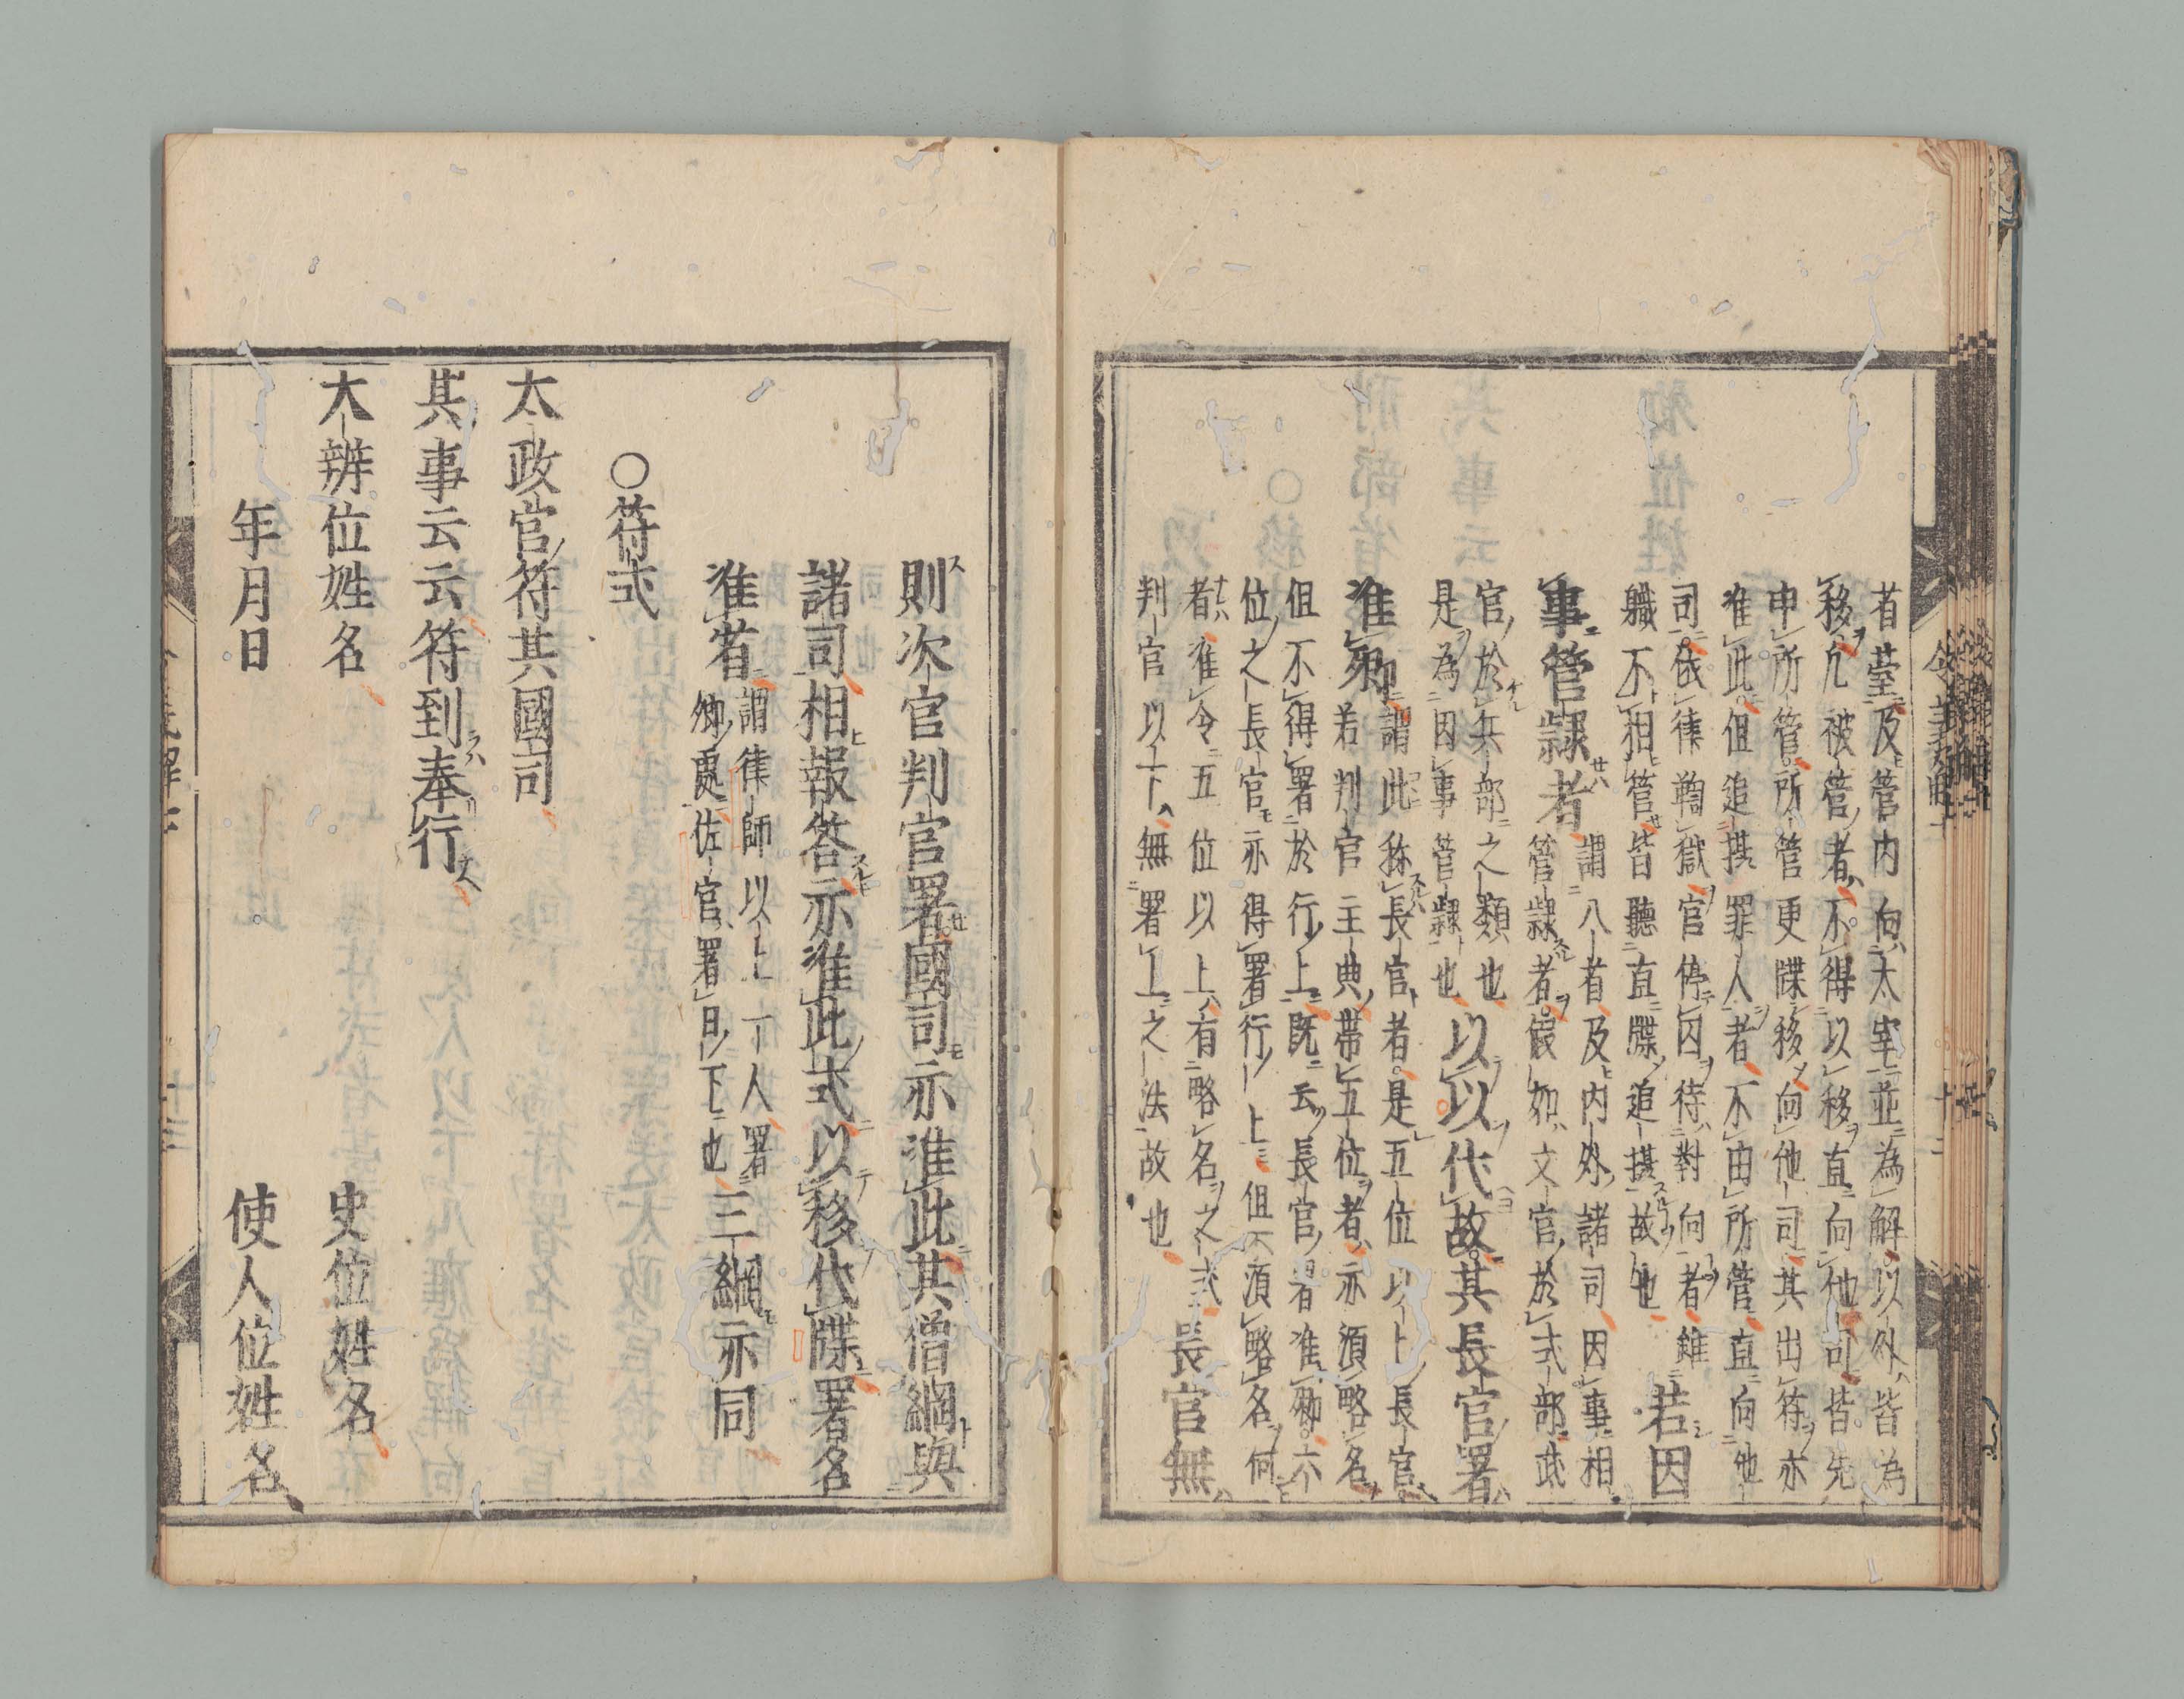 者臺及管内向太宰並為解以外皆為
移凡被管者不得以移直向他司皆先
申所管所管更牒移向他司其出符亦
准此但追攝罪人者不由所管直向他
司依律鞫獄官停囚待對向者雖
職不相管皆聽直牒追攝故也若因
事管隷者謂八者及内外諸司因事相
管隷者假如文官於式部武
官於兵部之類也
是為因事管隷也以以代故其長官署
准卿謂此称長官者是五位以上長官
若判官主典帯五位者亦須略名
但不得署於行上既云長官署准卿六
位之長官亦得署行上但不須略名何
者准令五位以上有略名之式
判官以下無署上之法故也長官無
則次官判官署國司亦准此其僧綱與
諸司相報答亦准此式以移代牒署名
准省謂律師以上一人署
卿處佐官署日下也三綱亦同
○符式
太政官符其國司
其事云云符到奉行
大辨位姓名 史位姓名
年月日 使人位姓名